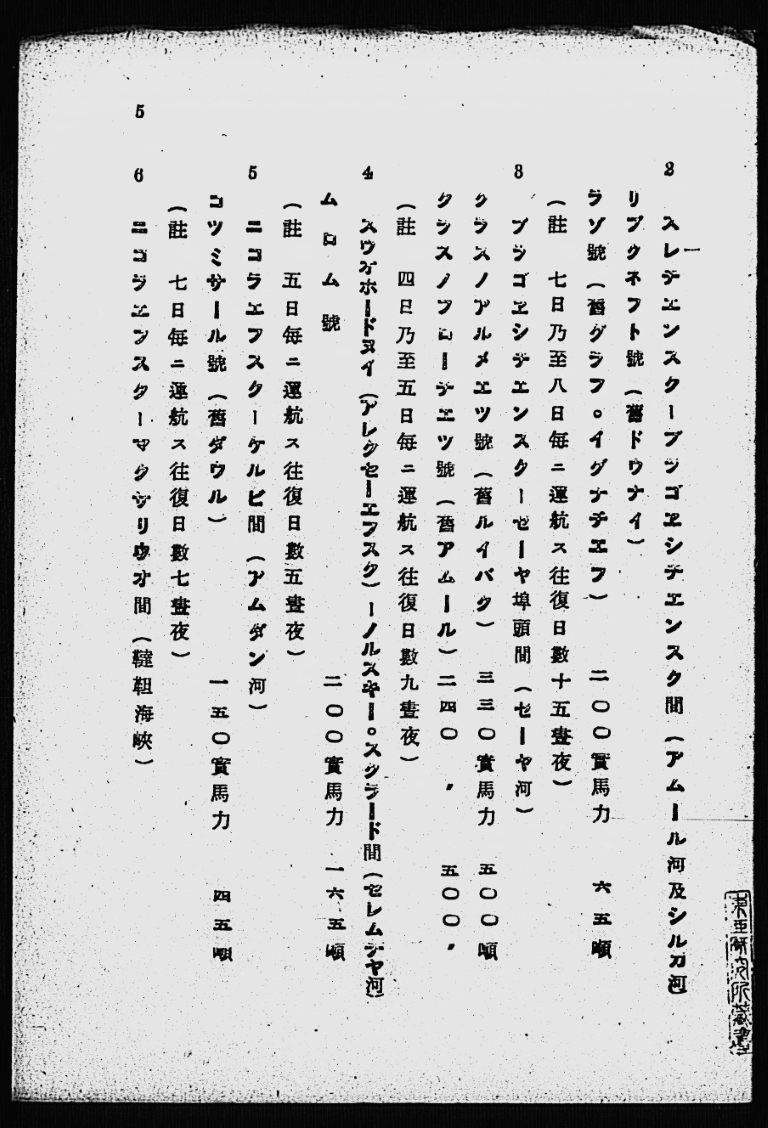 2 スレチエンスクーブラゴヱシチエンスク間（アムール河及シルカ河）
リプクネフト號（舊ドウナイ）
ラゾ號（舊グラフ。イグナチエフ） 二〇〇實馬力 六五噸
（註 七日乃至八日毎ニ運航ス往復日數十五晝夜）
3 ブラゴヱシチエンスクーゼーヤ埠頭間（ゼーヤ河）
クラスノアルメエツ號（舊ルイバク） 三三〇實馬力 五〇〇噸
クラスノフローチエツ號（舊アムール）二四〇 〃 五〇〇〃
（註 四日乃至五日毎ニ運航ス往復日數九晝夜）
4 スウオホードヌイ（アレクセーエフスク）ーノルスキー。スクラード間（セレムヂヤ河）
ムロム號 二〇〇實馬力 一六五噸
（註 五日毎ニ運航ス往復日數五晝夜）
5 ニコラエフスクーケルビ間（アムグン河）
コツミサール號（舊ダウル） 一五〇實馬力 四五噸
（註 七日毎ニ運航ス往復日數七晝夜）
6 ニコラエフスターマクサリウオ間（韃靼海峽）
5
東亞研究所藏書